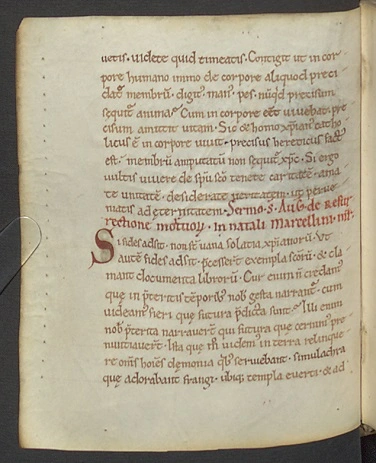 uetis · uidete quid timeatis · Contigit ut in cor
pore humano immo de corpore aliquod preci
datˀ membrũ · digitˀ manˀ pes · nũqđ precisum
sequitˀ anima · Cum in corpore eẽt uiuebat · pre
cisum amittit uitam · Sic &
liticus ẽ in corpore uiuit · precisus hereticus
est · membrũ amputatũ non sequit sp̃c · Si ergo
uultis uiuere de sp̃u sc̃o tenete caritatẽ · ama
te unitatẽ · desiderate ueritatem · ut perue
niatis ad eternitatem · Sermo · S · Aug̃ · de Resur
rectione mortuoꝝ · in natali Marcellini · mr̃
Si fides adsit · non st̃ uana solatia xp̃ianorũ · Ut
autẽ fides adsit · p̃cesser̃ exempla sc̃orũ · & cla
mant documenta librorũ · Cur enim ñ credam9
que in p̃teritis tẽporib3 nob̃ gesta narrant̃ · cum
uideam9 fieri que futura p̃dicta sunt · Illi enim
nob̃ p̃terita narrauer̃ qui futura que cernim9 pre
nuntiauer̃ · Ista que m̃ uidem9 in terra relinque
re om̃s hoĩes demonia qb3 seruiebant · simulachra
que adorabant frangi · ubiq3 templa euerti · & ad